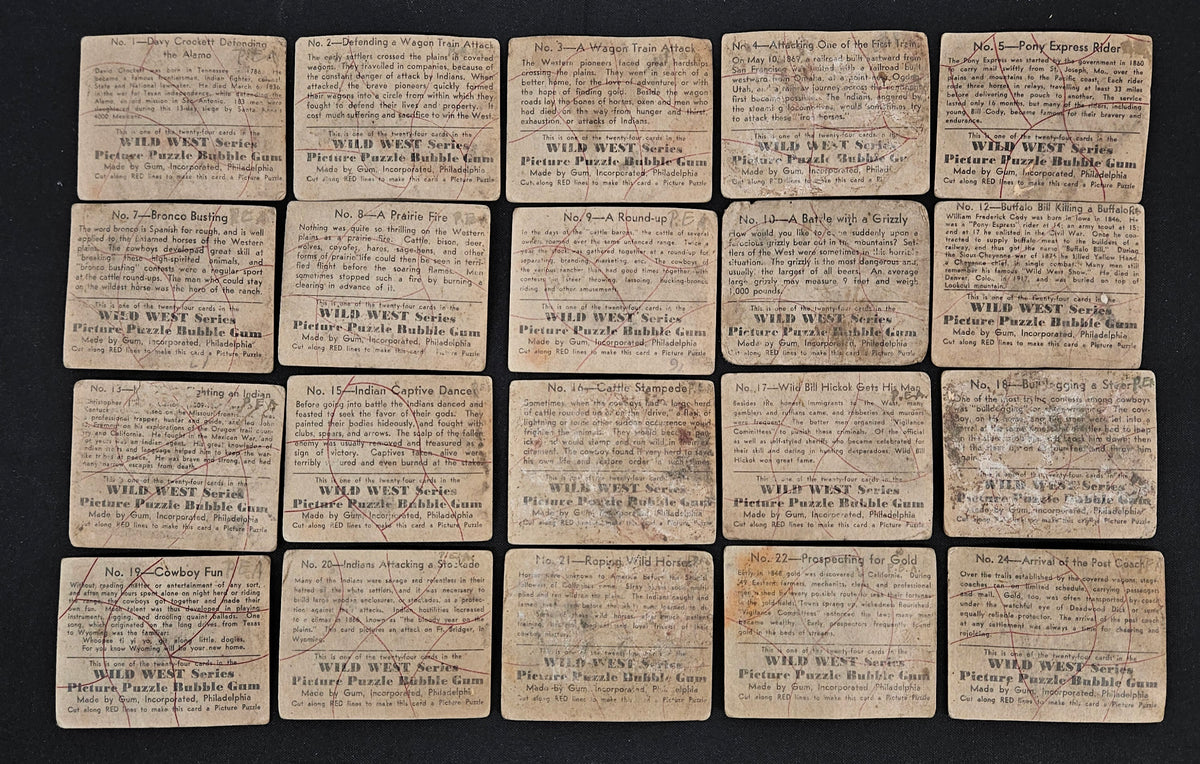 No. 1—Davy Crockett Defending
the Alamo
David Crockett was born in Tennessee in 1786. He
became a famous frontiersman, Indian fighter, and
State and National lawmaker. He died March 6, 1836,
in the war for Texas independence, while defending the
Alamo, an old mission in San Antonio. 183 men were
4000 Mexicans.
This is one of the twenty-four cards in the
WILD WEST Series
Picture Puzzle Bubble Gum
Made by Gum, Incorporated, Philadelphia
Cut along RED lines to make this card a Picture Puzzle
No. 2—Defending a Wagon Train Attack
The early settlers crossed the plains in covered
wagons. They traveled in companies, because of
the constant danger of attack by Indians. When
attacked, the brave pioneers quickly formed
their wagons into a circle from within which they
fought to defend their lives and property. It
cost much suffering and sacrifice to win the West.
This is one of the twenty-four cards in the
WILD WEST Series
Picture Puzzle Bubble Gum
Made by Gum, Incorporated, Philadelphia
Cut along RED lines to make this card a Picture Puzzle
No. 3—A Wagon Train Attack
The Western pioneers faced great hardships
crossing the plains. They went in search of a
better home, for the love of adventure, or with
the hope of finding gold. Beside the wagon
roads lay the bones of horses, oxen and men who
had died on the way from hunger and thirst,
exhaustion or attacks of Indians.
This is one of the twenty-four cards in the
WILD WEST Series
Picture Puzzle Bubble Gum
Made by Gum, Incorporated, Philadelphia
Cut along RED lines to make this card a Picture Puzzle
No. 4—Attacking One of the First Trains
On May 10, 1869, a railroad built eastward from
San Francisco was linked with a railroad built
westward from Omaha, at a point near Ogden,
Utah, and a railway journey across the continent
first became possible. The Indians, angered by
the steaming locomotives, would sometimes try
to attack these "iron horses."
This is one of the twenty-four cards in the
WILD WEST Series
Picture Puzzle Bubble Gum
Made by Gum, Incorporated, Philadelphia
Cut along RED lines to make this card a
No. 5—Pony Express Rider
The Pony Express was started by the government in 1860
to carry mail swiftly from St. Joseph, Mo., over the
plains and mountains to the Pacific coast. Each rider
rode three horses in relays, travelling at least 33 miles
before delivering the pouch to another. The service
lasted only 16 months, but many of the riders, including
young Bill Cody, became famous for their bravery and
endurance.
This is one of the twenty-four cards in the
WILD WEST Series
Picture Puzzle Bubble Gum
Made by Gum, Incorporated, Philadelphia
Cut along RED lines to make this card a Picture Puzzle
No. 7—Bronco Busting
The word bronco is Spanish for rough, and is well
applied to the untamed horses of the Western
plains. The cowboys developed great skill at
breaking these high-spirited animals, and
"bronco busting" contests were a regular sport
at the cattle round-ups. The man who could stay
on the wildest horse was the hero of the ranch.
This is one of the twenty-four cards in the
WILD WEST Series
Picture Puzzle Bubble Gum
Made by Gum, Incorporated, Philadelphia
Cut along RED lines to make this card a Picture Puzzle
No. 8—A Prairie Fire
Nothing was quite so thrilling on the Western
plains as a prairie-fire. Cattle, bison, deer,
wolves, coyotes, hares, sage-hens, and other
forms of prairie life could then be seen in terri-
fied flight before the soaring flames. Men
sometimes stopped such a fire by burning a
clearing in advance of it.
This is one of the twenty-four cards in the
WILD WEST Series
Picture Puzzle Bubble Gum
Made by Gum, Incorporated, Philadelphia
Cut along RED lines to make this card a Picture Puzzle
No. 9—A Round-up
In the days of the "cattle barons," the cattle of several
owners roamed over the same unfenced range. Twice a
year the cattle was gathered together at a round-up for
separating, branding, marketing, etc. The cowboys of
the various ranches then had good times together with
contests in steer throwing, lassoing, bucking-bronco
riding, and other amusements.
This is one of the twenty-four cards in the
WILD WEST Series
Picture Puzzle Bubble Gum
Made by Gum, Incorporated, Philadelphia
Cut along RED lines to make this card a Picture Puzzle
No. 10—A Battle with a Grizzly
How would you like to come suddenly upon a
ferocious grizzly bear out in the mountains? Set-
tlers of the West were sometimes in this horrible
situation. The grizzly is the most dangerous and
usually the largest of all bears. An average
large grizzly may measure 9 feet and weigh
1,000 pounds.
This is one of the twenty-four cards in the
WILD WEST Series
Picture Puzzle Bubble Gum
Made by Gum, Incorporated, Philadelphia
Cut along RED lines to make this card a Picture Puzzle
No. 12—Buffalo Bill Killing a Buffalo
William Frederick Cody was born in Iowa in 1846. He
was a "Pony Express" rider at 14; an army scout at 15;
and at 17 he enlisted in the Civil War. Once he con-
tracted to supply buffalo meat to the builders of a
railway, and thus got the name "Buffalo Bill." During
the Sioux-Cheyenne war of 1875 he killed Yellow Hand,
a Cheyenne chief, in single combat. Many men still
remember his famous "Wild West Show." He died in
Denver, Colo., in 1917, and was buried on top of
Lookout mountain.
This is one of the twenty-four cards in
WILD WEST Series
Picture Puzzle Bubble Gum
Made by Gum, Incorporated, Philadelphia
Cut along RED lines to make this card a Picture Puzzle
No. 13— Fighting an Indian
Christopher
on the Missouri frontier.
professional trapper, hunter and guide, and led John
C. Fremont on his explorations of the Oregon Trail coun-
try. He fought in the Mexican War, and
years was an Indian agent. His great knowledge of
Indian habits and language helped him to keep the war-
He was brave and strong, and had
many narrow escapes from death.
This is one of the twenty-four cards in the
WILD WEST Series
Picture Puzzle Bubble Gum
Made by Gum, Incorporated, Philadelphia
Cut along RED lines to make this card a Picture Puzzle
No. 15—Indian Captive Dance
Before going into battle the Indians danced and
feasted to seek the favor of their gods. They
painted their bodies hideously and fought with
clubs, spears, and arrows. The scalp of the fallen
enemy was usually removed and treasured as a
sign of victory. Captives taken alive were
terribly tortured and even burned at the stake.
This is one of the twenty-four cards in the
WILD WEST Series
Picture Puzzle Bubble Gum
Made by Gum, Incorporated, Philadelphia
Cut along RED lines to make this card a Picture Puzzle
No. 16—Cattle Stampede
Sometimes, when the cowboys had a large herd
of cattle rounded up or on the "drive," a flash of
lightning or some other sudden occurrence would
frighten the animals. They would become pan-
icky and would stamp and run wild in
citement. The cowboy found it very hard to save
his own life and restore order in such
This is one of the twenty-four cards in the
WILD WEST Series
Picture Puzzle Bubble Gum
Made by Gum, Incorporated, Philadelphia
Cut along RED lines
No. 17—Wild Bill Hickok Gets His Man
Besides the honest immigrants to the West, many
gamblers and ruffians came, and robberies and murders
were frequent. The better may organized "Vigilance
Committees" to punish these criminals. Of the officers
as well as self-styled sheriffs who became celebrated for
their skill and daring in hunting desperadoes, Wild Bill
Hickok won great fame.
This is one of the twenty-four cards in the
WILD WEST Series
Picture Puzzle Bubble Gum
Made by Gum, Incorporated, Philadelphia
Cut along RED lines to make this card a Picture Puzzle
No. 18—Bulldogging a Steer
One of the most thrilling contests among the cow-
boys was "bulldogging"
WILD WEST Series
Picture Puzzle Bubble Gum
Made by Gum, Incorporated, Philadelphia
Cut along RED lines to make this card a Picture Puzzle
No. 19—Cowboy Fun
Without reading matter or entertainment of any sort,
and after many hours spent alone on night herd or riding
the range, cowboys got together and made their
own fun. Much talent was thus developed in playing
instruments, jigging, and drooling quaint ballads. One
song, which originated on the long drives from Texas
to Wyoming was the familiar:
Whoopee ti yi yo, git along little dogies,
For you know Wyoming will be your new home.
This is one of the twenty-four cards in the
WILD WEST Series
Picture Puzzle Bubble Gum
Made by Gum, Incorporated, Philadelphia
Cut along RED lines to make this card a Picture Puzzle
No. 20—Indians Attacking a Stockade
Many of the Indians were savage and relentless in their
hatred of the white settlers, and it was necessary to
build large wooden enclosures, or stockades, as a protec-
tion against their attacks. Indian hostilities increased
to a climax in 1866, known as "the bloody year on the
plains." This card pictures an attack on Ft. Bridger, in
Wyoming.
This is one of the twenty-four cards in the
WILD WEST Series
Picture Puzzle Bubble Gum
Made by Gum, Incorporated, Philadelphia
Cut along RED lines to make this card a Picture Puzzle
No. 21—Roping Wild Horses
This is one of the twenty-four cards in the
WILD WEST Series
Picture Puzzle Bubble Gum
Made by Gum, Incorporated, Philadelphia
Cut along RED lines to make this
No. 22—Prospecting for Gold
Early in 1848 gold was discovered in California. During
'49 Eastern farmers, mechanics, clerks, and professional
men came by every possible route to seek their fortunes
in the gold-fields. Towns sprang up, wickedness flourished.
"Vigilance Committees" enforced the law; many men
became wealthy. Early prospectors frequently found
gold in the beds of streams.
This is one of the twenty-four cards in the
WILD WEST Series
Picture Puzzle Bubble Gum
Made by Gum, Incorporated, Philadelphia
Cut along RED lines to make this card a Picture Puzzle
No. 24—Arrival of the Post Coach
Over the trails established by the covered wagons, stage-
coaches ran on scheduled schedule, carrying passengers
and mail. Gold, too, was often transported by coach
under the watchful eye of Deadwood Dick or some
equally reliable protector. The arrival of the post coach
at any settlement was always a time for cheering and
rejoicing.
This is one of the twenty-four cards in the
WILD WEST Series
Picture Puzzle Bubble Gum
Made by Gum, Incorporated, Philadelphia
Cut along RED lines to make this card a Picture Puzzle